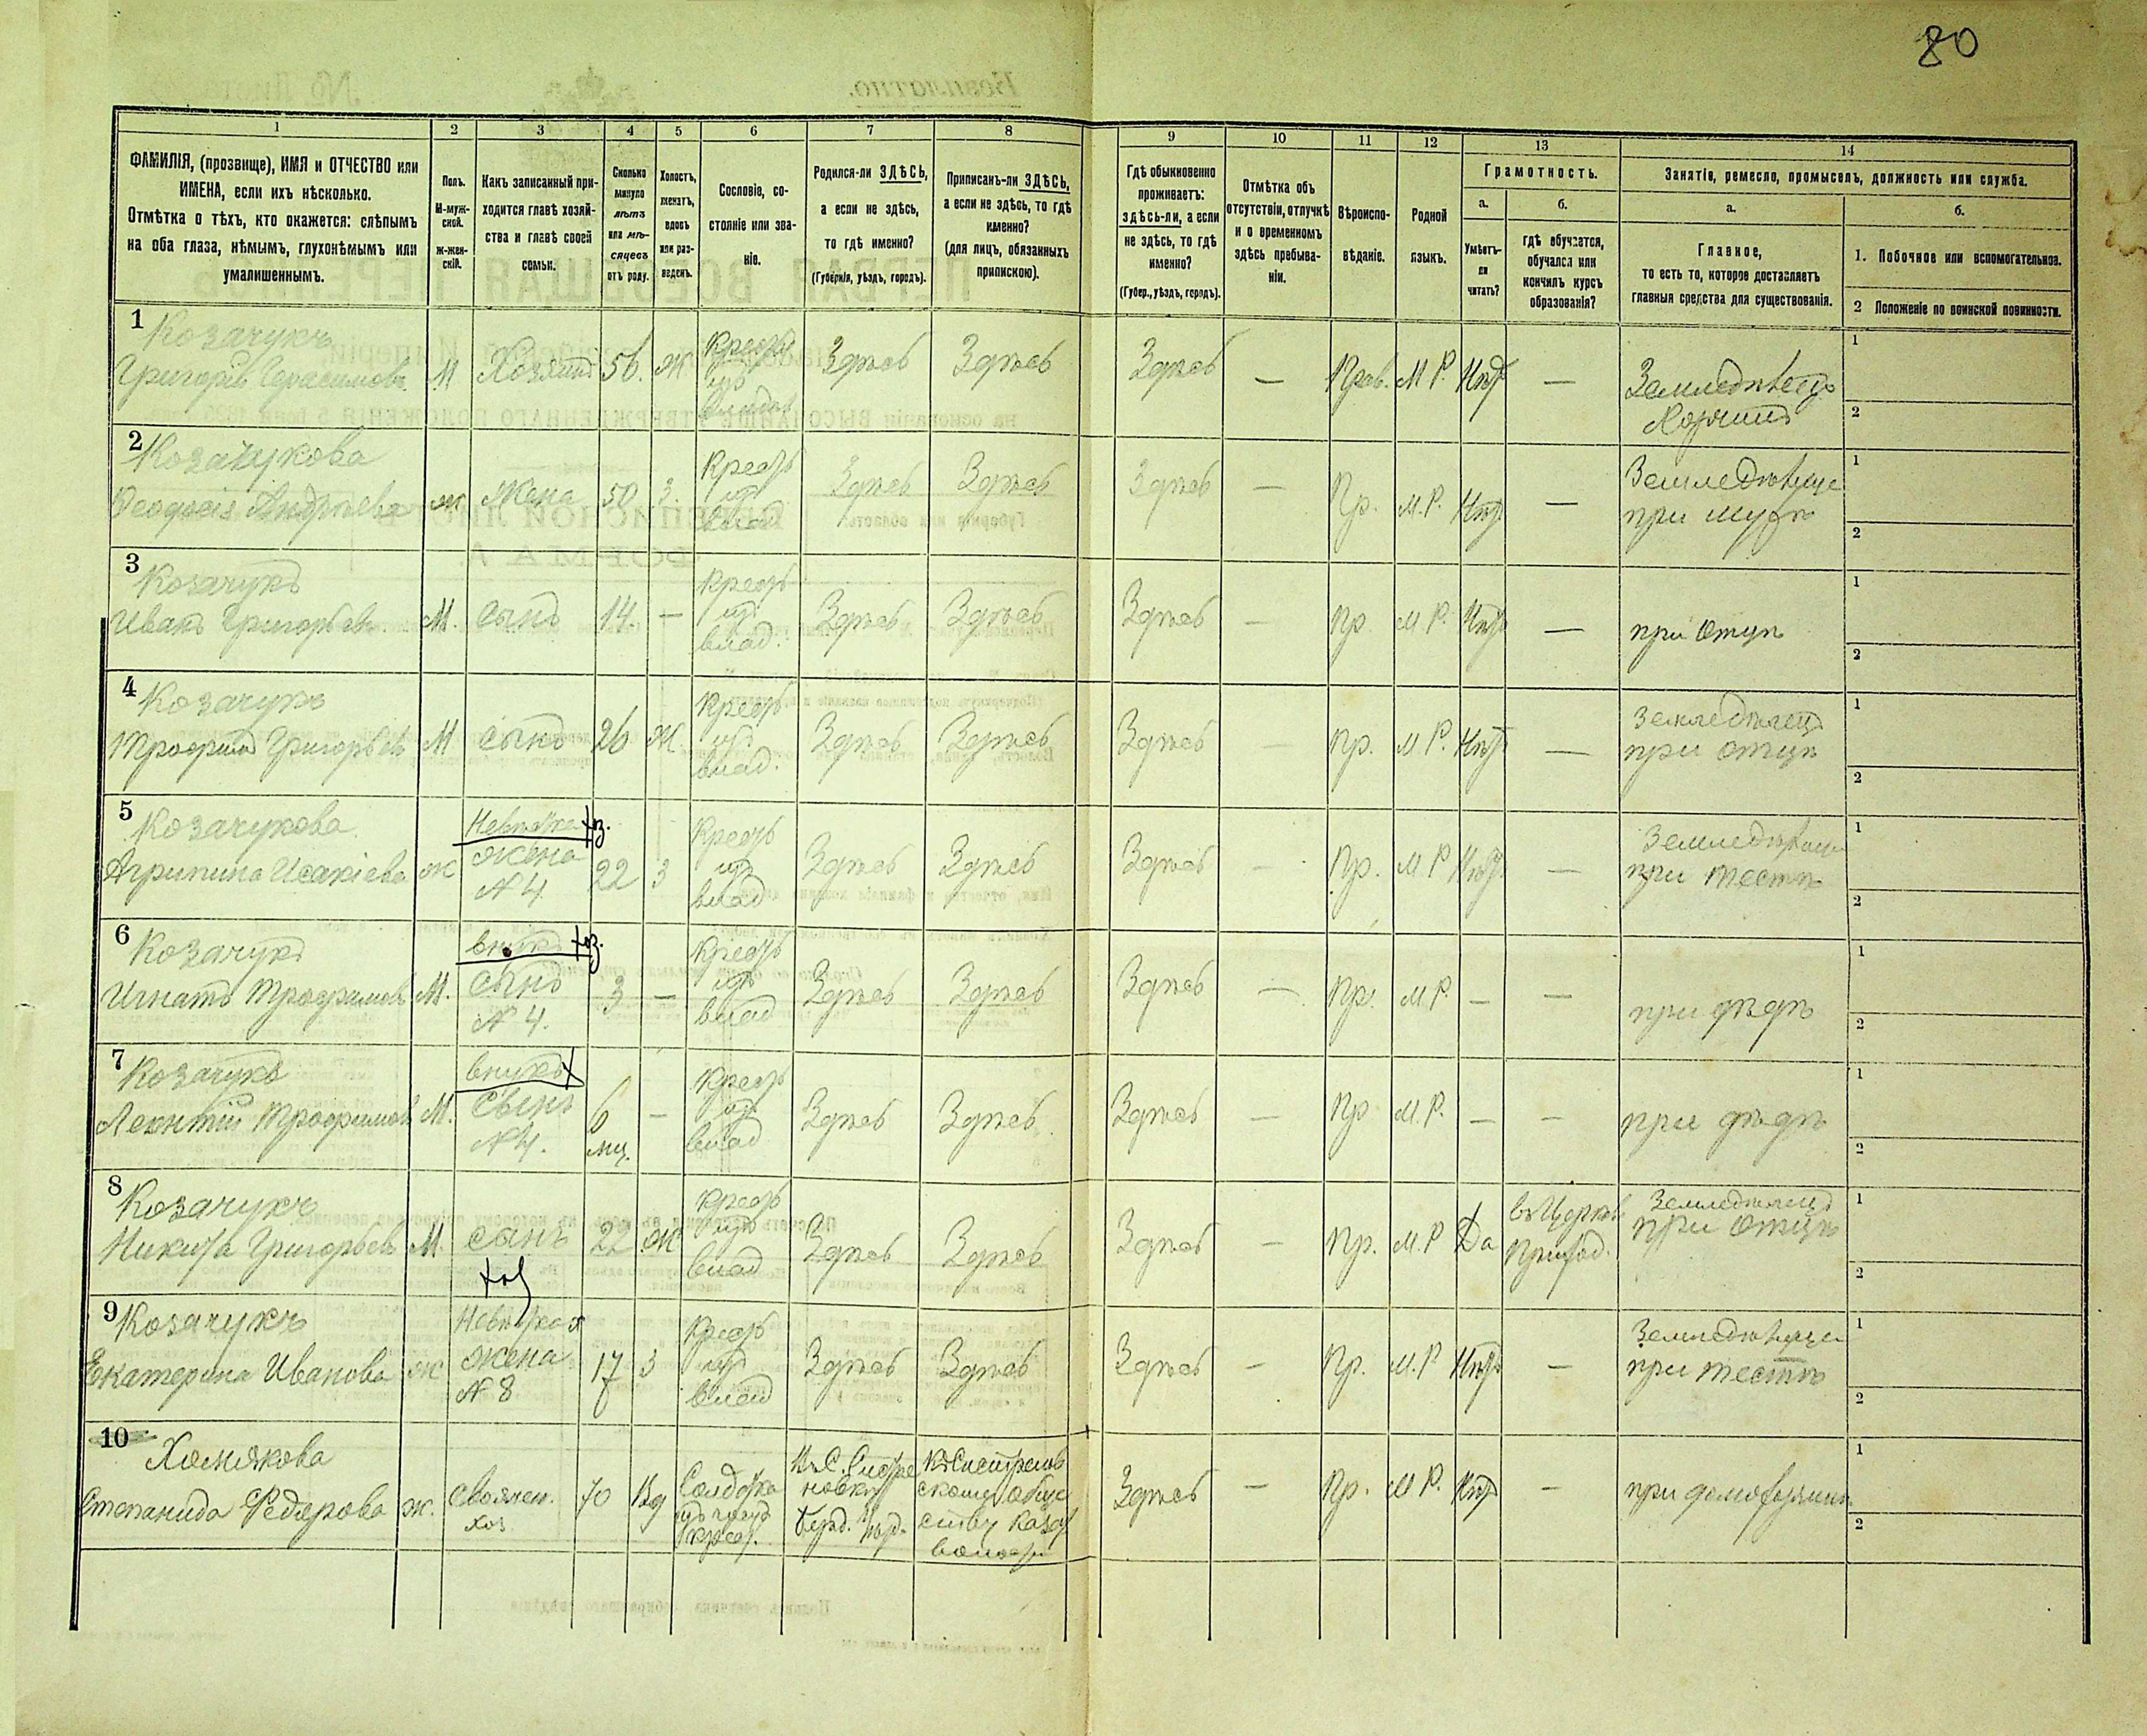 80
1 2 3 4 5 6 7 8 9 10 11 12 13 14
ФАМИЛІЯ, (прозвище), ИМЯ и ОТЧЕСТВО или
ИМЕНА, если ихъ нѣсколько.
Отмѣтка о тѣхъ, кто окажется: слѣпымъ
на оба глаза, нѣмымъ, глухонѣмымъ или
умалишеннымъ.
Полъ.
М-муж-
ской.
ж-жен-
скій.
Какъ записанный при-
ходится главѣ хозяй-
ства и главѣ своей
семьи.
Сколько
минуло
лѣтъ
или мѣ-
сяцевъ
отъ роду.
Холостъ,
женатъ,
вдовъ
или раз-
веденъ.
Сословіе, со-
стояніе или зва-
ніе.
Родился-ли ЗДѢСЬ,
а если не здѣсь,
то гдѣ именно?
(Губернія, уѣздъ, городъ).
Приписанъ-ли ЗДѢСЬ,
а если не здѣсь, то гдѣ
именно?
(для лицъ, обязанныхъ
припискою).
Гдѣ обыкновенно
проживаетъ:
здѣсь-ли, а если
не здѣсь, то гдѣ
именно?
(Губер., уѣздъ, городъ).
Отмѣтка объ
отсутствіи, отлучкѣ
и о временномъ
здѣсь пребыва-
ніи.
Вѣроиспо-
вѣданіе.
Родной
языкъ.
Грамотность.
а.
Умѣетъ-
ли
читать?
б.
гдѣ обучается,
обучался или
кончилъ курсъ
образованія?
Занятіе, ремесло, промыселъ, должность или служба.
а.
Главное,
то есть то, которое доставляетъ
главныя средства для существованія.
б.
1. Побочное или вспомогательное.
2 Положеніе по воинской повинности.
1 Козачукъ
Григорій Герасимовъ М Хозяинъ 56. Ж Крест изъ владѣл Здѣсь Здѣсь Здѣсь — Прав. М Р. Нѣт — Земледѣлецъ
1
2
2 Козачукова
Феодосія Андрѣева ж Жена 50 З. Крест из влад. Здѣсь Здѣсь Здѣсь — Пр. М.Р. Нѣт — Земледѣлица
при мужѣ
1
2
3 Козачукъ
Иванъ Григорьевъ М. Сынъ 14. — Крест из влад. Здѣсь Здѣсь Здѣсь — Пр М.Р. Нѣт — при Отцѣ
1
2
4 Козачукъ
Трофимъ Григорьевъ М Сынъ 26 Ж Крест из влад. Здѣсь Здѣсь Здѣсь — Пр. М Р. Нѣт — Земледѣлецъ
при отцѣ
1
2
5 Козачукова Невѣстка хоз.
Агрипина Исакіева ж жена 22 З Крест из влад Здѣсь Здѣсь Здѣсь — Пр. М Р Нѣт — Земледѣлица
N 4. при тестѣ
1
2
6 Козачукъ внукъ хоз.
Игнатъ Трофимовъ М. Сынъ 3 — Крест из влад Здѣсь Здѣсь Здѣсь — Пр. М.Р. — — при дѣдѣ
N 4.
1
2
7 Козачукъ внукъ х
Леонтій Трофимовъ М. Сынъ 6 мц. — Крест из влад Здѣсь Здѣсь Здѣсь — Пр М.Р. — — при дѣдѣ
N 4.
1
2
8 Козачукъ
Никита Григорьевъ М. Сынъ 22 Ж Крест из влад Здѣсь Здѣсь Здѣсь — Пр. М.Р Да въ Церков Приход. Земледѣлецъ
хоз при Отцѣ
1
2
9 Козачукъ Невѣстка х
Екатерина Иванова ж жена 17 З Крест из влад Здѣсь Здѣсь Здѣсь — Пр. М.Р Нѣт — Земледѣлица
N 8 при тестѣ
1
2
10 Хомякова
Степанида Федорова ж. Своячен. 70 Вд Солдатка крест. Здѣсь — Пр. М Р. Нѣт — при домохозяинѣ
хоз
1
2